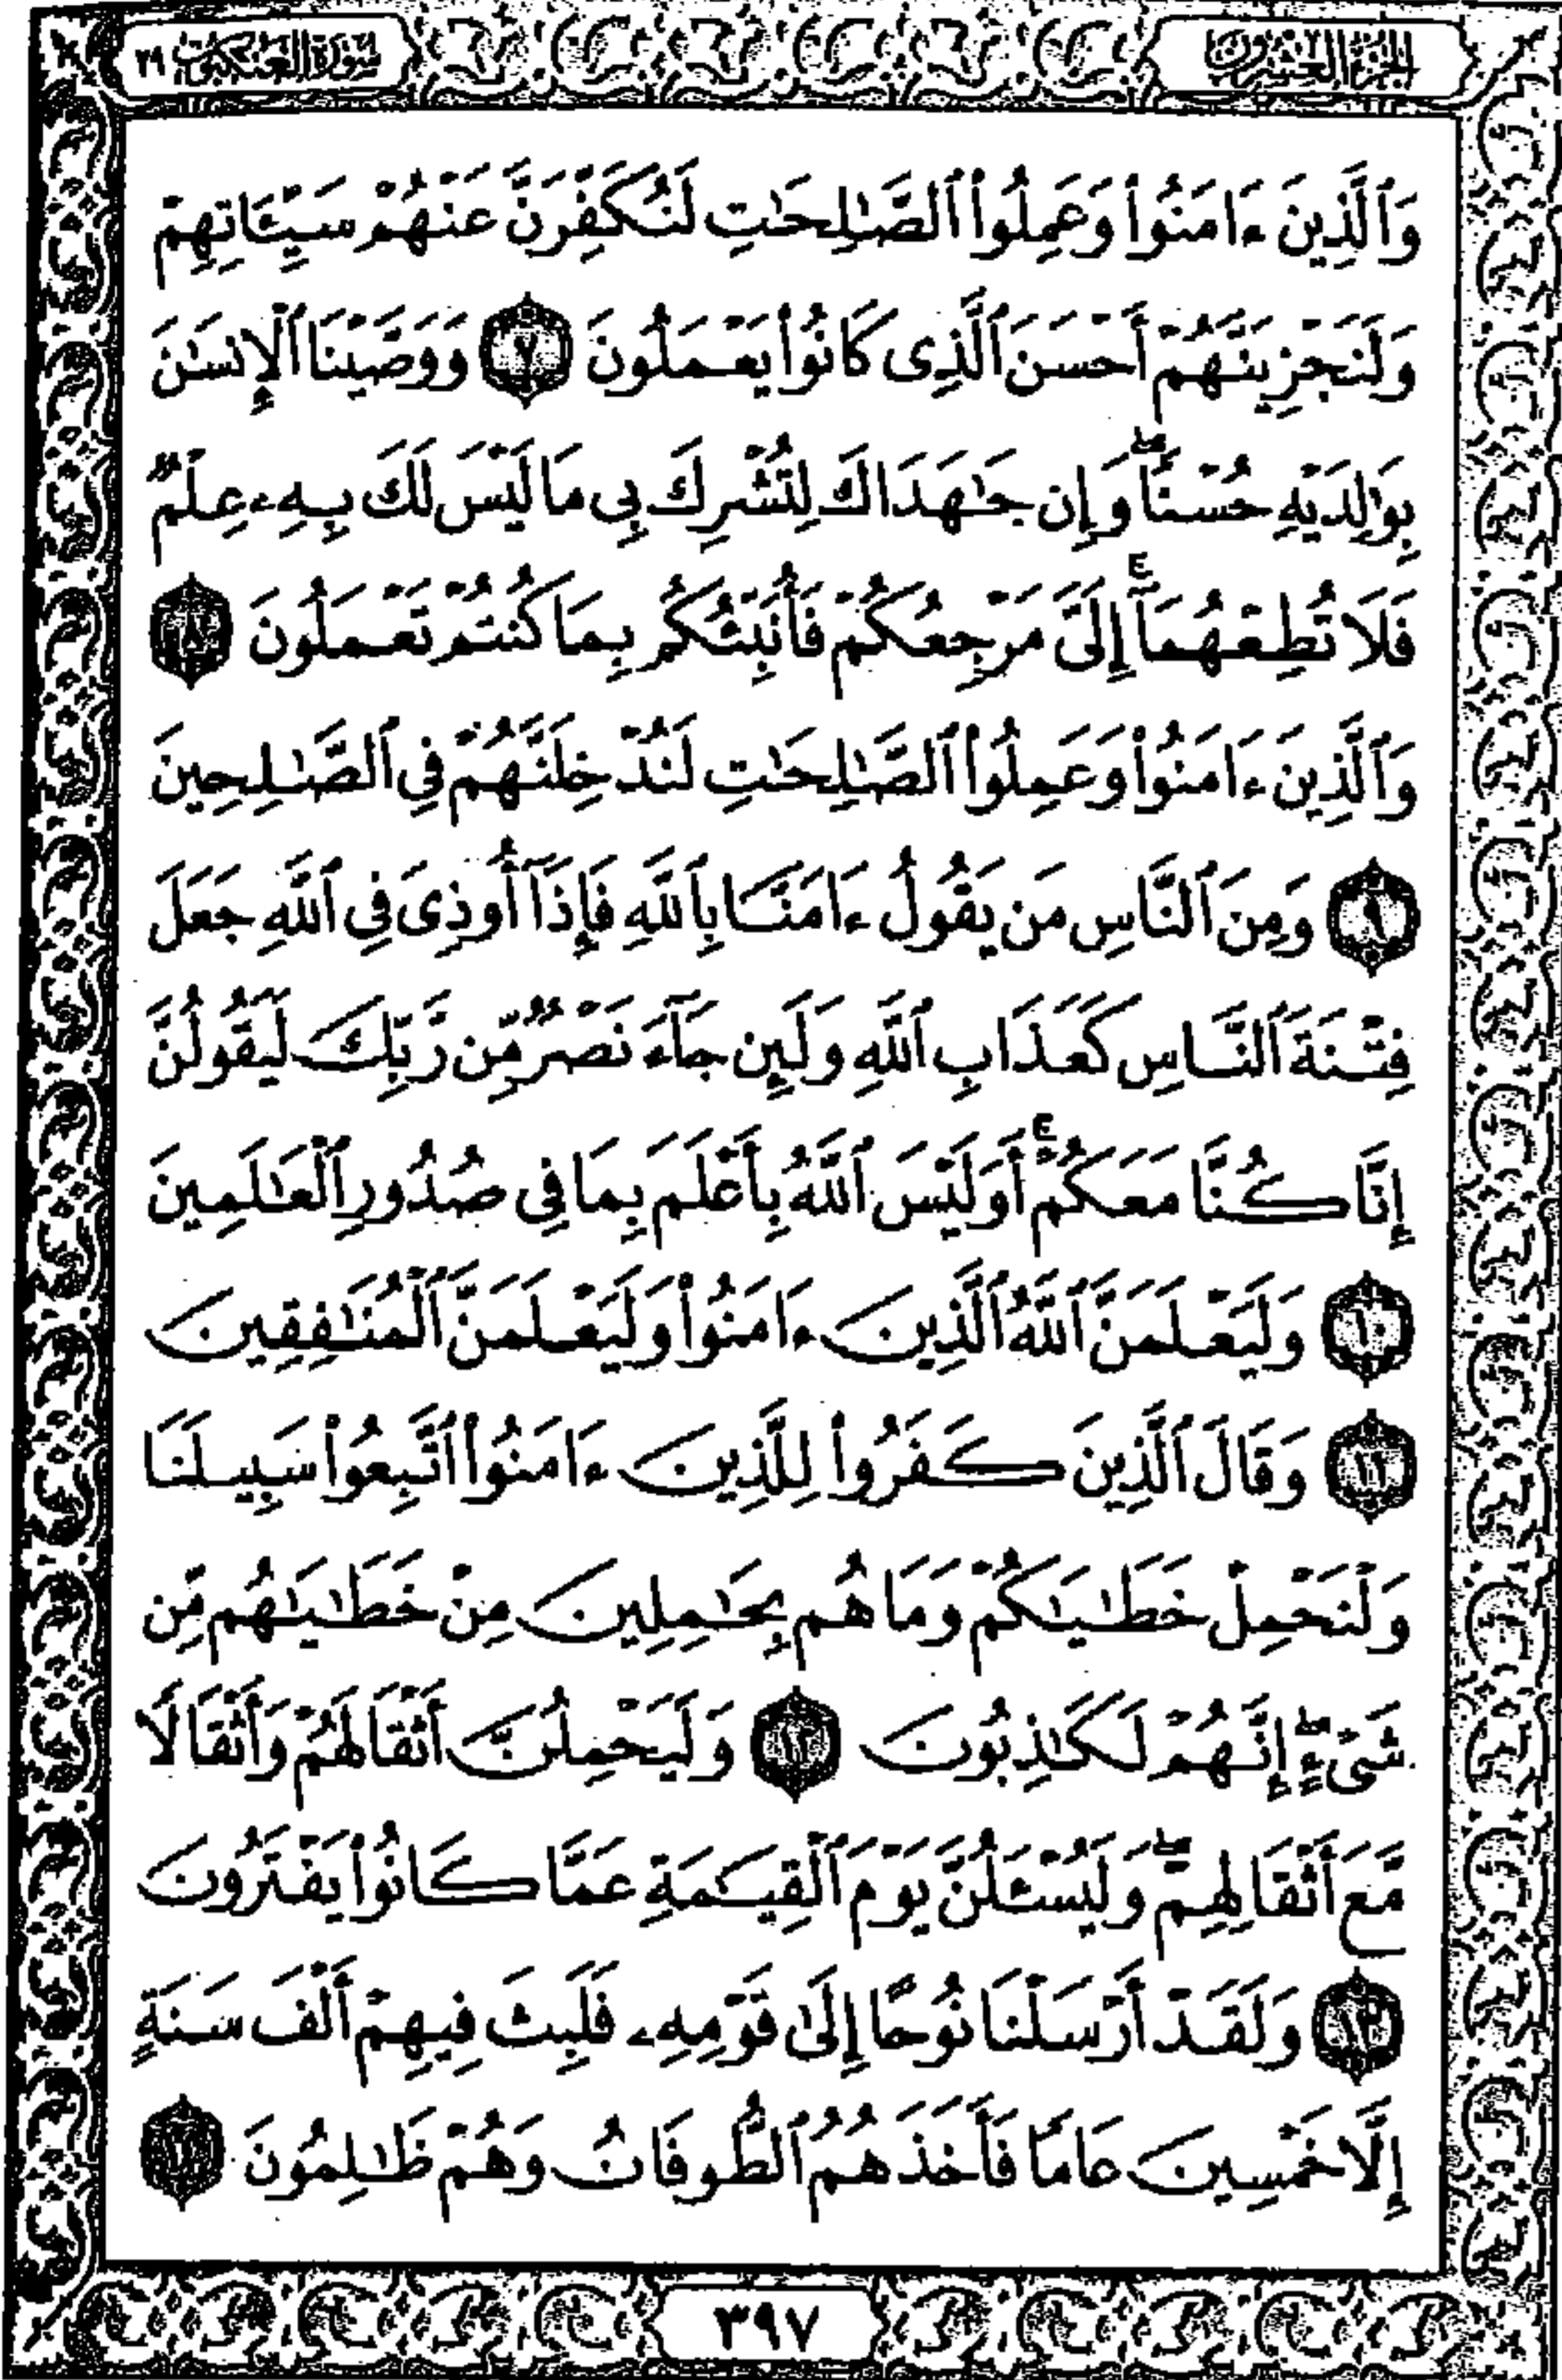 الجزء العشرون
سورة العنكبوت ٢٩
وَٱلَّذِينَ ءَامَنُوا۟ وَعَمِلُوا۟ ٱلصَّـٰلِحَـٰتِ لَنُكَفِّرَنَّ عَنْهُمْ سَيِّـَٔاتِهِمْ
وَلَنَجْزِيَنَّهُمْ أَحْسَنَ ٱلَّذِى كَانُوا۟ يَعْمَلُونَ ٧ وَوَصَّيْنَا ٱلْإِنسَـٰنَ
بِوَٰلِدَيْهِ حُسْنًا ۖ وَإِن جَـٰهَدَاكَ لِتُشْرِكَ بِى مَا لَيْسَ لَكَ بِهِۦ عِلْمٌ
فَلَا تُطِعْهُمَآ ۚ إِلَىَّ مَرْجِعُكُمْ فَأُنَبِّئُكُم بِمَا كُنتُمْ تَعْمَلُونَ ٨
وَٱلَّذِينَ ءَامَنُوا۟ وَعَمِلُوا۟ ٱلصَّـٰلِحَـٰتِ لَنُدْخِلَنَّهُمْ فِى ٱلصَّـٰلِحِينَ
٩ وَمِنَ ٱلنَّاسِ مَن يَقُولُ ءَامَنَّا بِٱللَّهِ فَإِذَآ أُوذِىَ فِى ٱللَّهِ جَعَلَ
فِتْنَةَ ٱلنَّاسِ كَعَذَابِ ٱللَّهِ وَلَئِن جَآءَ نَصْرٌ مِّن رَّبِّكَ لَيَقُولُنَّ
إِنَّا كُنَّا مَعَكُمْ ۚ أَوَلَيْسَ ٱللَّهُ بِأَعْلَمَ بِمَا فِى صُدُورِ ٱلْعَـٰلَمِينَ
١٠ وَلَيَعْلَمَنَّ ٱللَّهُ ٱلَّذِينَ ءَامَنُوا۟ وَلَيَعْلَمَنَّ ٱلْمُنَـٰفِقِينَ
١١ وَقَالَ ٱلَّذِينَ كَفَرُوا۟ لِلَّذِينَ ءَامَنُوا۟ ٱتَّبِعُوا۟ سَبِيلَنَا
وَلْنَحْمِلْ خَطَـٰيَـٰكُمْ وَمَا هُم بِحَـٰمِلِينَ مِنْ خَطَـٰيَـٰهُم مِّن
شَىْءٍ ۖ إِنَّهُمْ لَكَـٰذِبُونَ ١٢ وَلَيَحْمِلُنَّ أَثْقَالَهُمْ وَأَثْقَالًا
مَّعَ أَثْقَالِهِمْ ۖ وَلَيُسْـَٔلُنَّ يَوْمَ ٱلْقِيَـٰمَةِ عَمَّا كَانُوا۟ يَفْتَرُونَ
١٣ وَلَقَدْ أَرْسَلْنَا نُوحًا إِلَىٰ قَوْمِهِۦ فَلَبِثَ فِيهِمْ أَلْفَ سَنَةٍ
إِلَّا خَمْسِينَ عَامًا فَأَخَذَهُمُ ٱلطُّوفَانُ وَهُمْ ظَـٰلِمُونَ ١٤
٣٩٧